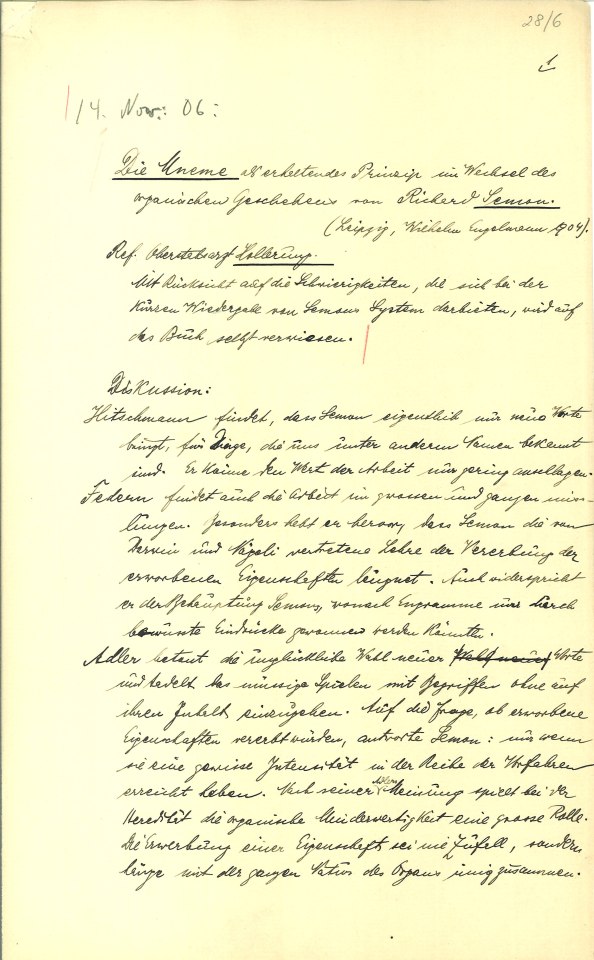 28/6
1
14. Nov.: 06:
Die Mneme als erhaltendes Prinzip im Wechsel des
organischen Geschehens von Richard Semon.
(Leipzig, Wilhelm Engelmann 904).
Ref. Oberstabsarzt Sollerung.
Mit Rücksicht auf die Schwierigkeiten, die sich bei der
kurzen Wiedergabe von Semons System darbieten, wird auf
das Buch selbst verwiesen.
Diskussion:
Hitschmann findet, dass Semon eigentlich nur neue Worte
bringt, für Dinge, die uns unter anderm Namen bekannt
sind. Er könne den Wert der Arbeit nur gering anschlagen.
Federn findet auch die Arbeit im grossen und ganzen miss-
lungen. Besonders hebt er hervor, dass Semon die von
Darwin und Nägeli vertretene Lehre der Vererbung der
erworbenen Eigenschaften läugnet. Auch widerspricht
er der Behauptung Semons, wonach Engramme nur durch
bewusste Eindrücke gewonnen werden könnten.
Adler betont die unglückliche Wahl neuer Worte
und tadelt das müssige Spielen mit Begriffen ohne auf
ihren Inhalt einzugehen. Auf die Frage, ob erworbene
Eigenschaften vererbt würden, antworte Semon: nur wenn
sie eine gewisse Intensität in der Reihe der Vorfahren
erreicht haben. Nach seiner Adlers Meinung spielt bei der
Heredität die organische Minderwertigkeit eine grosse Rolle.
Die Erwerbung einer Eigenschaft sei nie Zufall, sondern
hänge mit der ganzen Natur des Organs innig zusammen.